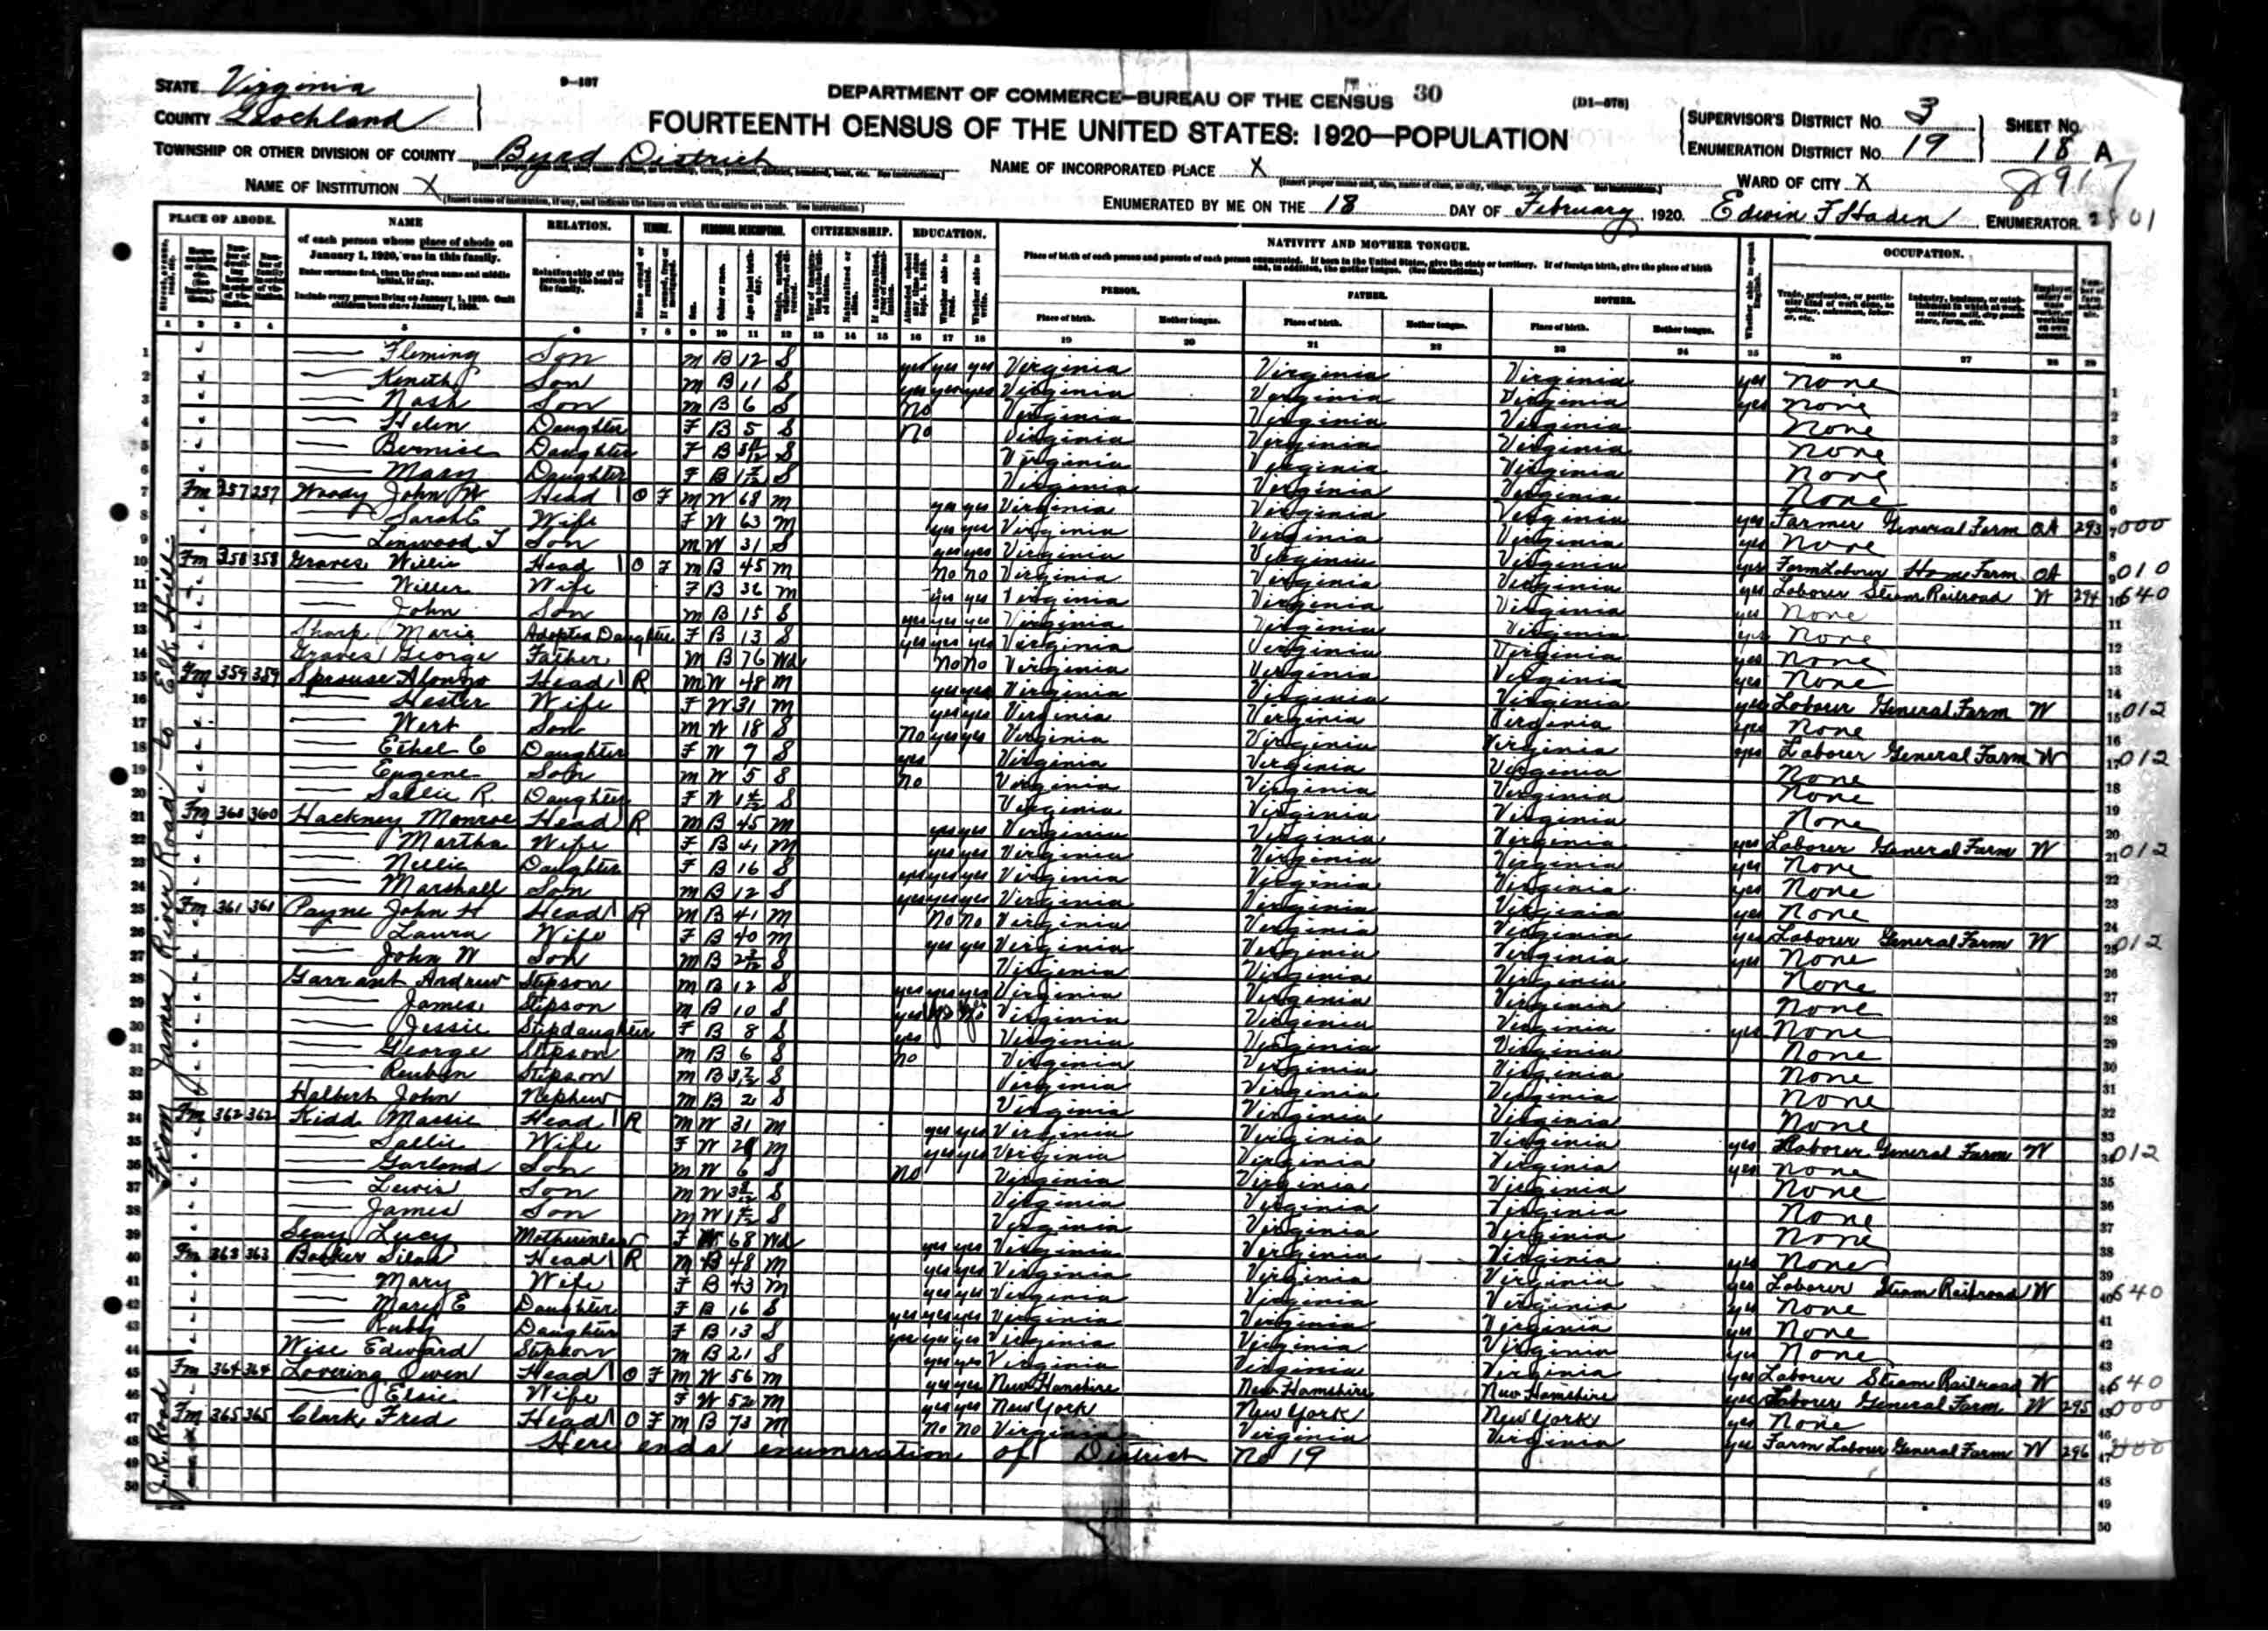 STATE Virginia
9-107
DEPARTMENT OF COMMERCE—BUREAU OF THE CENSUS 30
(D1-878)
COUNTY Goochland
FOURTEENTH CENSUS OF THE UNITED STATES: 1920—POPULATION
SUPERVISOR'S DISTRICT No. 3
SHEET No.
TOWNSHIP OR OTHER DIVISION OF COUNTY Byrd District
NAME OF INCORPORATED PLACE X
ENUMERATION DISTRICT No. 19
18 A
NAME OF INSTITUTION X
WARD OF CITY X
8917
ENUMERATED BY ME ON THE 18 DAY OF February, 1920. Edwin F Haden, ENUMERATOR
PLACE OF ABODE. NAME RELATION. TENURE. PERSONAL DESCRIPTION. CITIZENSHIP. EDUCATION. NATIVITY AND MOTHER TONGUE. OCCUPATION.
of each person whose place of abode on January 1, 1920, was in this family.
Enter surname first, then the given name and middle initial, if any.
Include every person living on January 1, 1920. Omit children born since January 1, 1920.
Relationship of this person to the head of the family.
Place of birth of each person and parents of each person enumerated. If born in the United States, give the state or territory. If of foreign birth, give the place of birth and, in addition, the mother tongue. (See Instructions.)
PERSON. FATHER. MOTHER.
Place of birth. Mother tongue. Place of birth. Mother tongue. Place of birth. Mother tongue.
1 2 3 4 5 6 7 8 9 10 11 12 13 14 15 16 17 18 19 20 21 22 23 24 25 26 27 28 29
From James River Road to Elk Hill
J. R. Road
1 Fleming Son M B 12 S yes yes yes Virginia Virginia Virginia yes None
2 Kenith Son M B 11 S yes yes yes Virginia Virginia Virginia yes None
3 Nash Son M B 6 S No Virginia Virginia Virginia None
4 Helen Daughter F B 5 S No Virginia Virginia Virginia None
5 Bernice Daughter F B S Virginia Virginia Virginia None
6 Mary Daughter F B S Virginia Virginia Virginia None
7 Fm 357 357 Woody John W Head 1 O F M W 68 M yes yes Virginia Virginia Virginia yes Farmer General Farm OA 293 000
8 Sarah E Wife F W 63 M yes yes Virginia Virginia Virginia yes None
9 Linwood T Son M W 31 S yes yes Virginia Virginia Virginia yes Farm Laborer Home Farm OA 010
10 Fm 358 358 Graves Willie Head 1 O F M B 45 M No No Virginia Virginia Virginia yes Laborer Steam Railroad W 294 640
11 Willer Wife F B 36 M yes yes Virginia Virginia Virginia yes None
12 John Son M B 15 S yes yes yes Virginia Virginia Virginia yes None
13 Sharp Marie Adopted Daughter F B 13 S yes yes yes Virginia Virginia Virginia yes None
14 Graves George Father M B 76 Wd No No Virginia Virginia Virginia yes None
15 Fm 359 359 Sprouse Alonzo Head 1 R M W 48 M yes yes Virginia Virginia Virginia yes Laborer General Farm W 012
16 Hester Wife F W 31 M yes yes Virginia Virginia Virginia yes None
17 Wert Son M W 18 S No yes yes Virginia Virginia Virginia yes Laborer General Farm W 012
18 Ethel C Daughter F W 7 S yes Virginia Virginia Virginia None
19 Eugene Son M W 5 S No Virginia Virginia Virginia None
20 Sallie R. Daughter F W S Virginia Virginia Virginia None
21 Fm 360 360 Hackney Monroe Head 1 R M B 45 M yes yes Virginia Virginia Virginia yes Laborer General Farm W 012
22 Martha Wife F B 41 M yes yes Virginia Virginia Virginia yes None
23 Nellie Daughter F B 16 S yes yes yes Virginia Virginia Virginia yes None
24 Marshall Son M B 12 S yes yes yes Virginia Virginia Virginia yes None
25 Fm 361 361 Payne John H Head 1 R M B 41 M No No Virginia Virginia Virginia yes Laborer General Farm W 012
26 Laura Wife F B 40 M yes yes Virginia Virginia Virginia yes None
27 John W Son M B S Virginia Virginia Virginia None
28 Garrant Andrew Stepson M B 12 S yes yes yes Virginia Virginia Virginia None
29 James Stepson M B 10 S yes Virginia Virginia Virginia yes None
30 Jessie Stepdaughter F B 8 S yes Virginia Virginia Virginia None
31 George Stepson M B 6 S no Virginia Virginia Virginia None
32 Reuben Stepson M B S Virginia Virginia Virginia None
33 Halbert John Nephew M B S Virginia Virginia Virginia None
34 Fm 362 362 Kidd Massie Head 1 R M W 31 M yes yes Virginia Virginia Virginia yes Laborer General Farm W 012
35 Sallie Wife F W M yes yes Virginia Virginia Virginia yes None
36 Garland Son M W 6 S No Virginia Virginia Virginia None
37 Lewis Son M W S Virginia Virginia Virginia None
38 James Son M W S Virginia Virginia Virginia None
39 Seay Lucy Motherinlaw F W 68 Wd yes yes Virginia Virginia Virginia yes None
40 Fm 363 363 Booker Silas Head 1 R M B 48 M yes yes Virginia Virginia Virginia yes Laborer Steam Railroad W 640
41 Mary Wife F B 43 M yes yes Virginia Virginia Virginia yes None
42 Mary E Daughter F B 16 S yes yes yes Virginia Virginia Virginia yes None
43 Ruby Daughter F B 13 S yes yes yes Virginia Virginia Virginia yes None
44 Wise Edward Stepson M B 21 S yes yes Virginia Virginia Virginia yes Laborer Steam Railroad W 640
45 Fm 364 364 Lovering Owen Head 1 O F M W 56 M yes yes New Hamshire New Hamshire New Hamshire yes Laborer General Farm W 295 000
46 Elsie Wife F W 52 M yes yes New York New York New York yes None
47 Fm 365 365 Clark Fred Head 1 O F M B 73 M No No Virginia Virginia Virginia yes Farm Laborer General Farm W 296 000
48 Here ends enumeration of District No 19
49
50